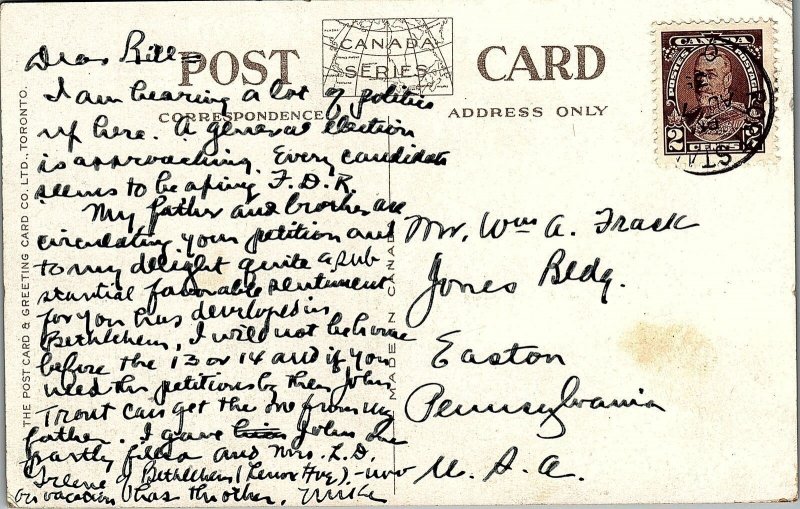 Dear Bill =
POST CARD
CANADA
SERIES
CORRESPONDENCE
ADDRESS ONLY
I am hearing a lot of politics
up here. A general election
is approaching. Every candidate
seems to be aping F.D.R.
My father and brother are
circulating your petition and
to my delight quite a sub
stantial favorable sentiment
for you has developed in
Bethlehem. I will not be home
before the 13 or 14 and if you
need the petitions by then John
Trout can get the one from my
father. I gave John one
partly filled and Mrs. L.D.
of Bethlehem (Lenox Ave) - now
on vacation has the other. Mike
Mr. Wm A. Frack
Jones Bldg.
Easton
Pennsylvania
U. S. A.
THE POST CARD & GREETING CARD CO. LTD., TORONTO.
MADE IN CANADA
CANADA
POSTES POSTAGE
2 CENTS 2